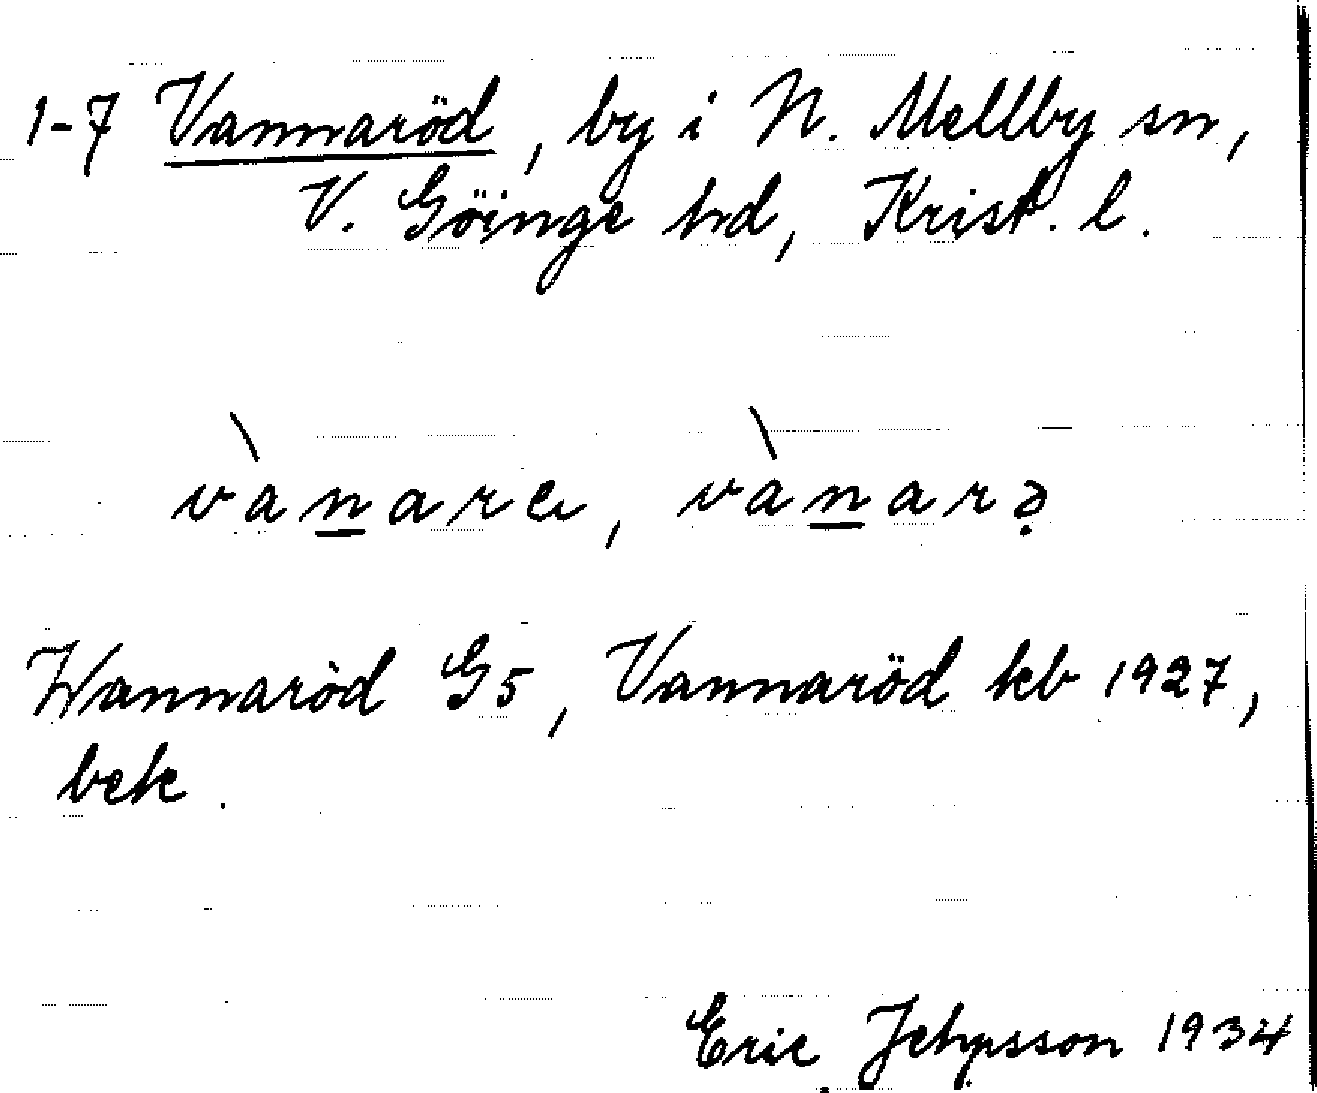 1-7 Vannaröd, by i N. Mellby sn,
V. Göinge hd, Krist. l.
vànare, vànarə̣
Wannaröd G5, Vannaröd kb 1927,
bek.
Eric Jehpsson 1934